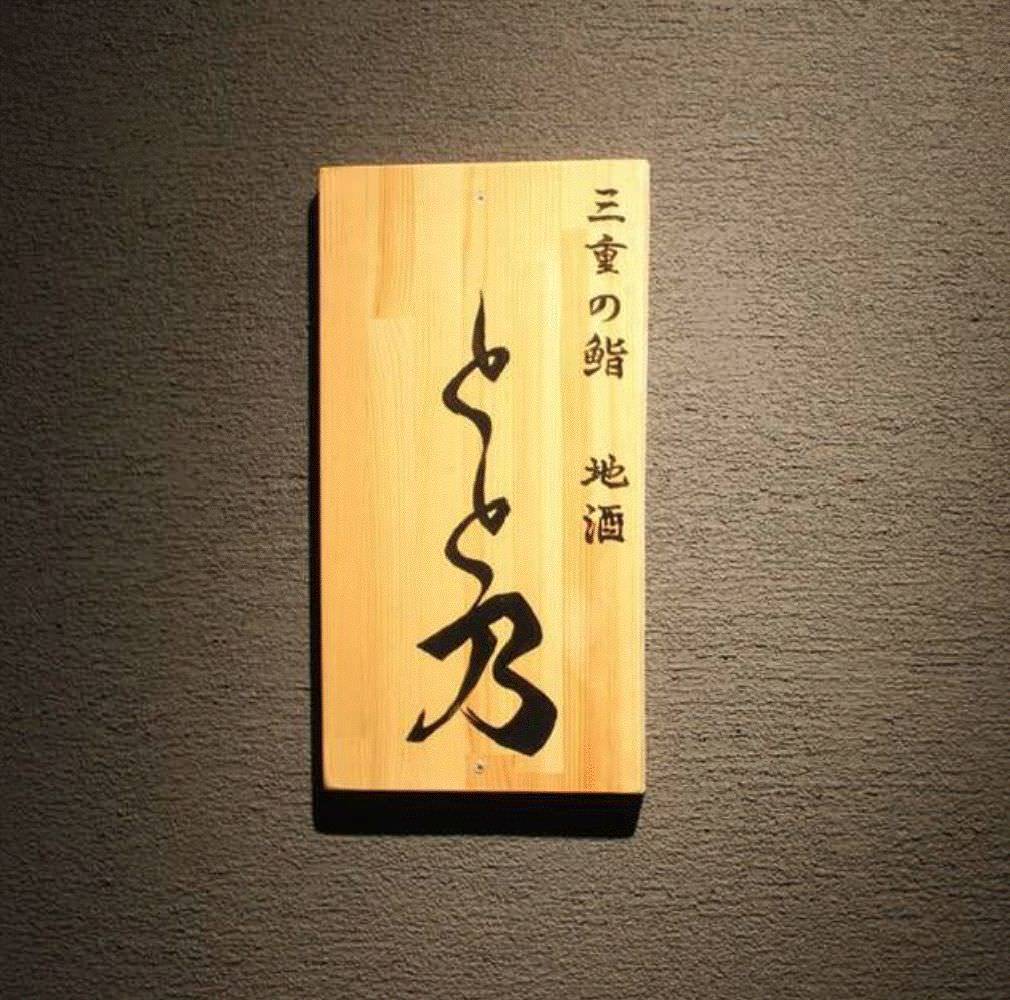 三重の鮨 地酒
とと乃